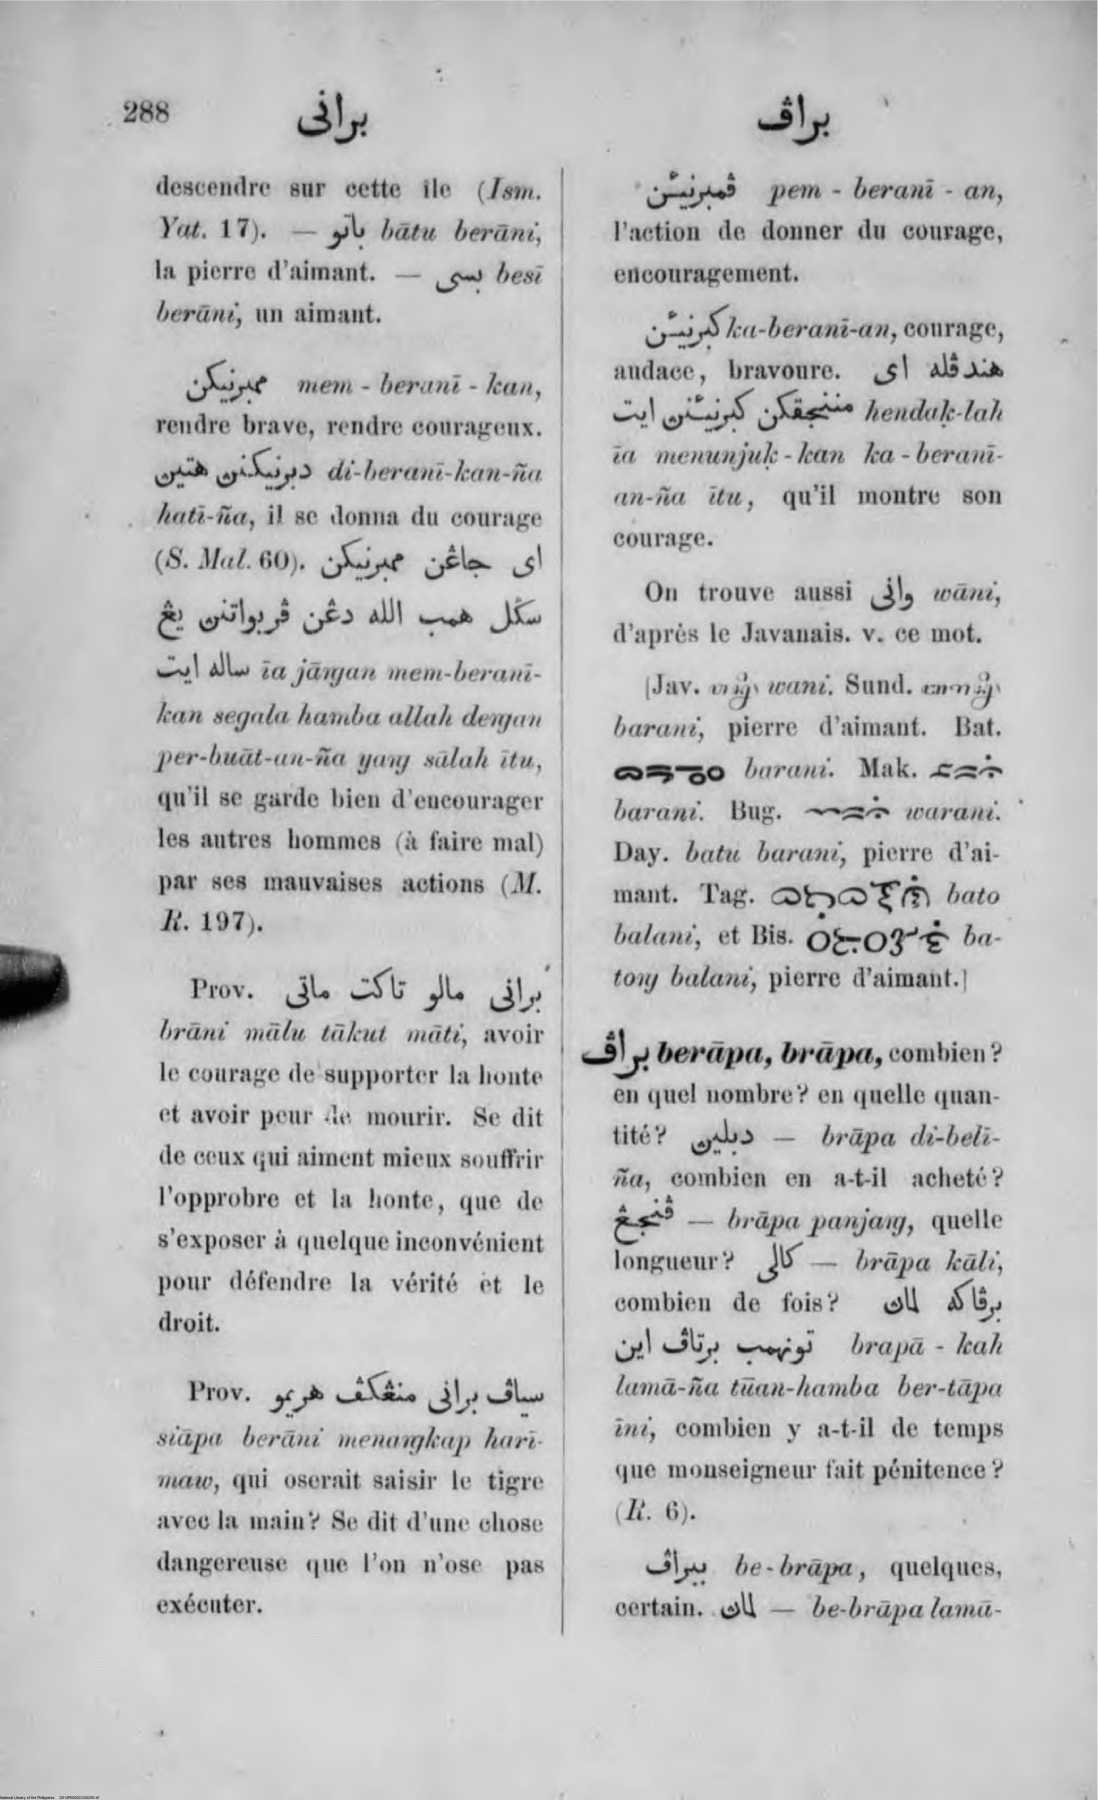 288
براني
براڤ
descendre sur cette île (Ism.
Yat. 17). — باتو bātu berāni,
la pierre d'aimant. — بسي besī
berāni, un aimant.
ممبرنيكن mem - beranī - kan,
rendre brave, rendre courageux.
دبرنيكنڽ هتيڽ di-beranī-kan-ña
hatī-ña, il se donna du courage
(S. Mal. 60). اي جاڠن ممبرنيكن
سݢل همب الله دڠن ڤربواتنڽ يڠ
ساله ايت īa jāṅgan mem-beranī-
kan segala hamba allah deṅgan
per-buāt-an-ña yaṅg sālah ītu,
qu'il se garde bien d'encourager
les autres hommes (à faire mal)
par ses mauvaises actions (M.
R. 197).
Prov. براني مالو تاكت ماتي
brāni mālu tākut māti, avoir
le courage de supporter la honte
et avoir peur de mourir. Se dit
de ceux qui aiment mieux souffrir
l'opprobre et la honte, que de
s'exposer à quelque inconvénient
pour défendre la vérité et le
droit.
Prov. سياڤ براني منڠكڤ هريمو
siāpa berāni menaṅgkap harī-
maw, qui oserait saisir le tigre
avec la main? Se dit d'une chose
dangereuse que l'on n'ose pas
exécuter.
ڤمبرنيئن pem - beranī - an,
l'action de donner du courage,
encouragement.
كبرنيئن ka-beranī-an, courage,
audace, bravoure. هندقله اي
مننجقكن كبرنيئنڽ ايت hendaḳ-lah
īa menunjuḳ-kan ka-beranī-
an-ña ītu, qu'il montre son
courage.
On trouve aussi واني wāni,
d'après le Javanais. v. ce mot.
[Jav. wani. Sund.
barani, pierre d'aimant. Bat.
barani. Mak.
barani. Bug. warani.
Day. batu barani, pierre d'ai-
mant. Tag. bato
balani, et Bis. ba-
toṅg balani, pierre d'aimant.]
براڤ berāpa, brāpa, combien?
en quel nombre? en quelle quan-
tité? دبليڽ — brāpa di-belī-
ña, combien en a-t-il acheté?
ڤنجڠ — brāpa panjaṅg, quelle
longueur? كالي — brāpa kāli,
combien de fois? برڤاكه لماڽ
تونهمب برتاڤ اين brapā - kah
lamā-ña tūan-hamba ber-tāpa
īni, combien y a-t-il de temps
que monseigneur fait pénitence?
(R. 6).
ببراڤ be-brāpa, quelques,
certain. لماڽ — be-brāpa lamā-